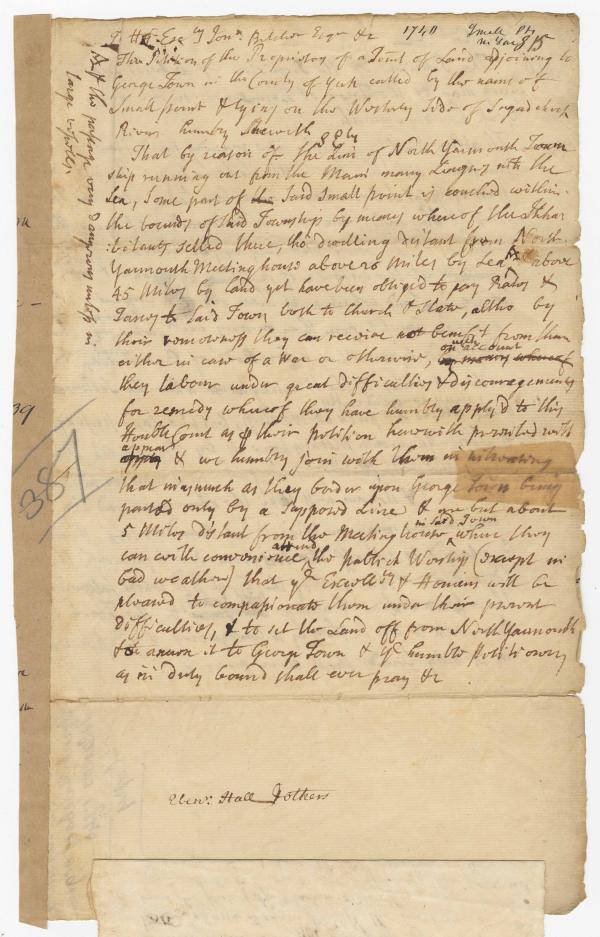 To His Exc.y Jon.a Belcher Esq.r &c 1740 Small Pt.
The Petition of the Proprietors of a Tract of Land adjoining to
George Town in the County of York called by the name of
Small point & lying on the Westerly Side of Sagadehock
River humbly Sheweth
That by reason of the Line of North Yarmouth Town
ship running out from the Main many Leagues into the
Sea, Some part of the said Small point is couched within
the bounds of said Township by means whereof the Inhab
:bitants settled there, tho dwelling distant from North
Yarmouth Meeting house above 26 Miles by Sea & above
45 Miles by land yet have been obliged to pay Rates &
Taxes to said Town both to Church & State, altho by
their remoteness they can receive no benefit from them
either in case of a War or otherwise, on which account
they labour under great difficulties & discouragements
for remedy whereof they have humbly apply'd to this
Hon.ble Court as p their petition herewith presented will
appear & we humbly join with them in intreating
that inasmuch as they border upon George Town being
parted only by a Supposed Line & are but about
5 Miles distant from the Meeting house in said Town where they
can with convenience attend the publick Worship (except in
bad weather) that y.r Excell.cy & Honours will be
pleased to compassionate them under their present
difficulties, & to set the Land off from North Yarmouth
& annex it to George Town & y.r humble petitioners
as in duty bound shall ever pray &c
Eben.r Hall & others
& the passage very dangerous unless in
large vessels,
387
39